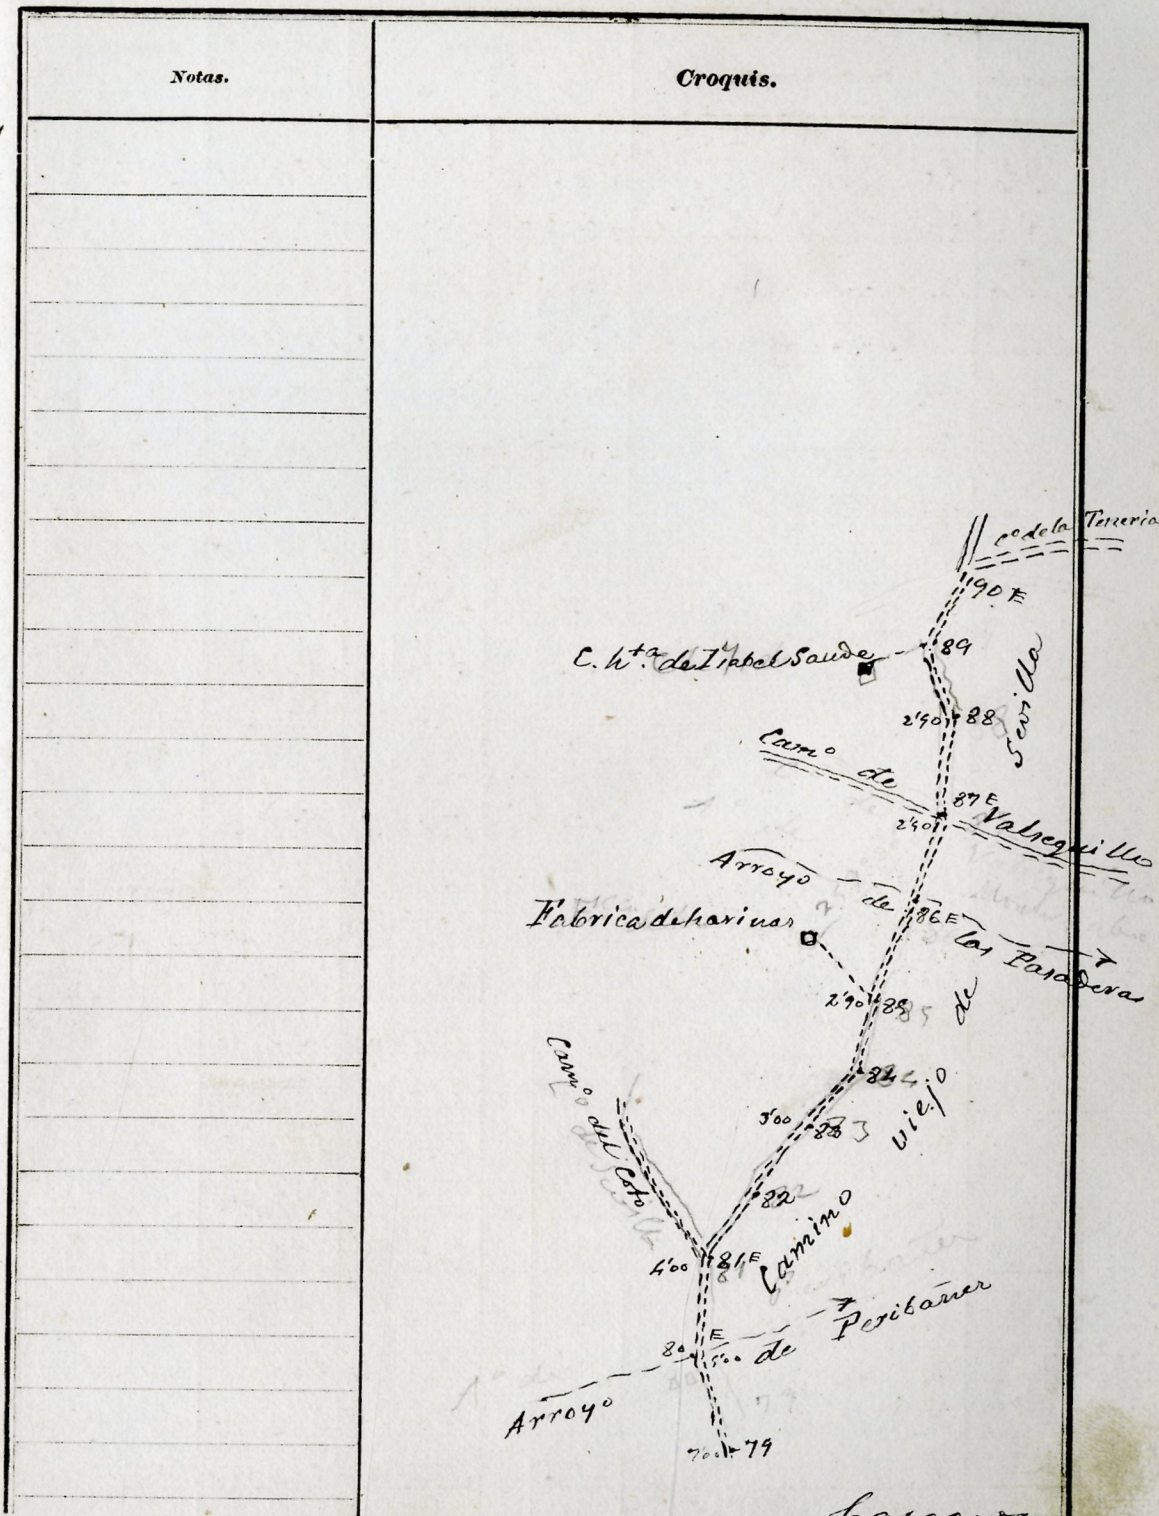 Notas.
Croquis.
Co de la Teneria
90 E
C. hta. de Isabel Saude
89
2'90 88
Camo de Valseguillo
87 E
2'40
Arroyo de las Pasaderas
86 E
Fabrica de harinas
2'90 85
84
3'00 83
82
Camo del Coto
4'00 81 E
Camino viejo de Sevilla
80 E
5'00
Arroyo de Peribañez
7'00 79